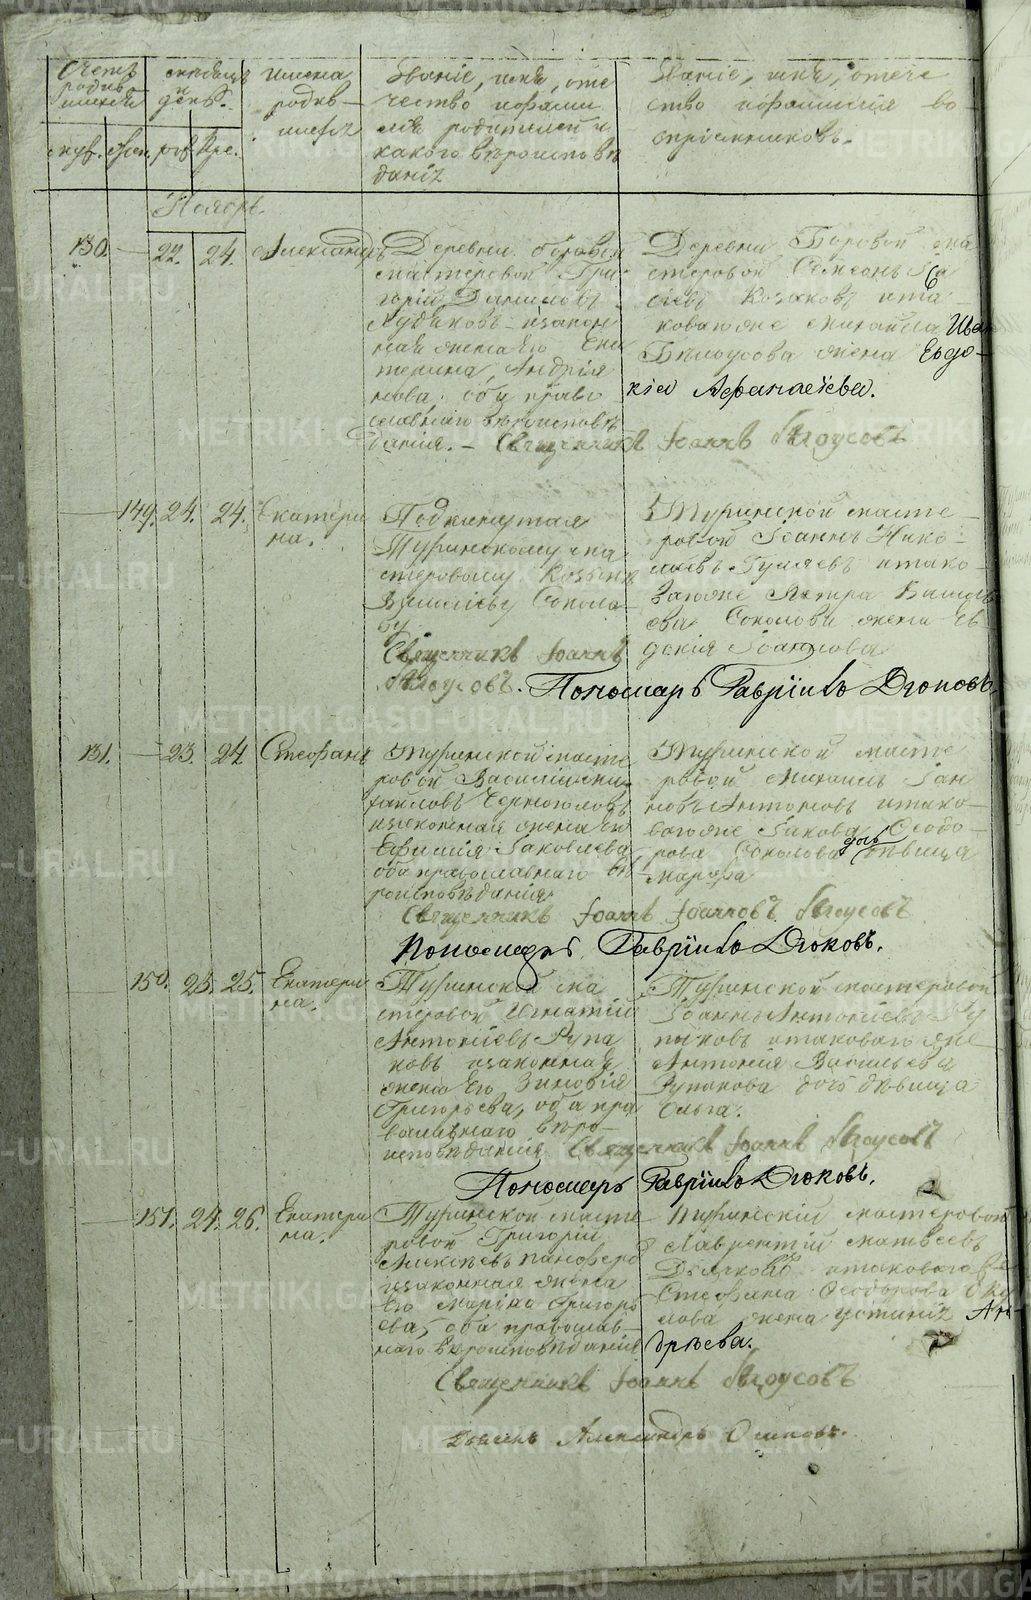 Счетъ родившихся
месяцъ и день.
имена родив-
шихся
Званіе, имя, оте-
чество и фами-
лія родителей и
какого вѣроисповѣ
данія
Званіе, имя, отече
ство и фамилія во-
спріемниковъ.
муж. жен. рож. кре.
Ноябрь.
130. — 22. 24. Александръ
Деревни Боровой
мастеровой Гри-
горій
и закон-
ная жена его Ека
терина Андрія
нова оба право
славнаго вѣроисповѣ
данія. — Священникъ Іоаннъ Бѣлоусовъ
Деревни Боровой ма
стеровой Семенъ
Козаковъ и та-
коваго же Михайла Иван
Бѣлоусова жена Евдо-
кія Афанасіева.
— 149. 24. 24. Екатери
на.
Подкинутая
Туринскому ма
стеровому Козьмѣ
Василіеву Соколо
ву
Священникъ Іоаннъ
Бѣлоусовъ. Пономарь Гавріилъ Дюковъ.
Туринской масте-
ровой Іоаннъ Нико-
лаевъ Гуляевъ и тако-
ваго же Петра Василь
ева Соколова жена Ев
докія Іоаннова
131. — 23. 24 Стефанъ
Туринской масте
ровой Василій Ми
хайловъ Черноголовъ
и законная жена его
Ефимія Яковлева
оба православнаго вѣ
роисповѣданія
Священникъ Іоаннъ Іоанновъ Бѣлоусовъ
Пономарь Гавріилъ Дюковъ.
Туринской масте
ровой Михаилъ Іан
новъ Антоновъ и тако-
ваго же Якова Ѳеодо-
рова Соколова дочь дѣвица
Марѳа
— 150. 23. 25. Екатери
на.
Туринской ма
стеровой Игнатій
Антоніевъ Рупа
ковъ и законная
жена его Зиновія
Григорьева, оба пра
вославнаго вѣро-
исповѣданія Священникъ Іоаннъ Бѣлоусовъ
Пономарь Гавріилъ Дюковъ.
Туринской мастеровой
Іоаннъ Антоніевъ Ру
паковъ и таковаго же
Антонія Васильева
Рупакова дочь дѣвица
Ольга.
— 151. 24. 26. Екатери
на.
Туринской масте
ровой Григорій
Алексѣевъ Панферо
и законная жена
его Марина Григорь
ева, оба православ-
наго вѣроисповѣданія
Туринскій мастеровой
Лаврентій Матвеевъ
Дьячковъ и таковаго же
Стефана Ѳеодорова
жена Устинія Ан-
дрѣева.
Священникъ Іоаннъ Бѣлоусовъ
Дьяконъ Александръ Осиповъ.
METRIKI.GASO-URAL.RU